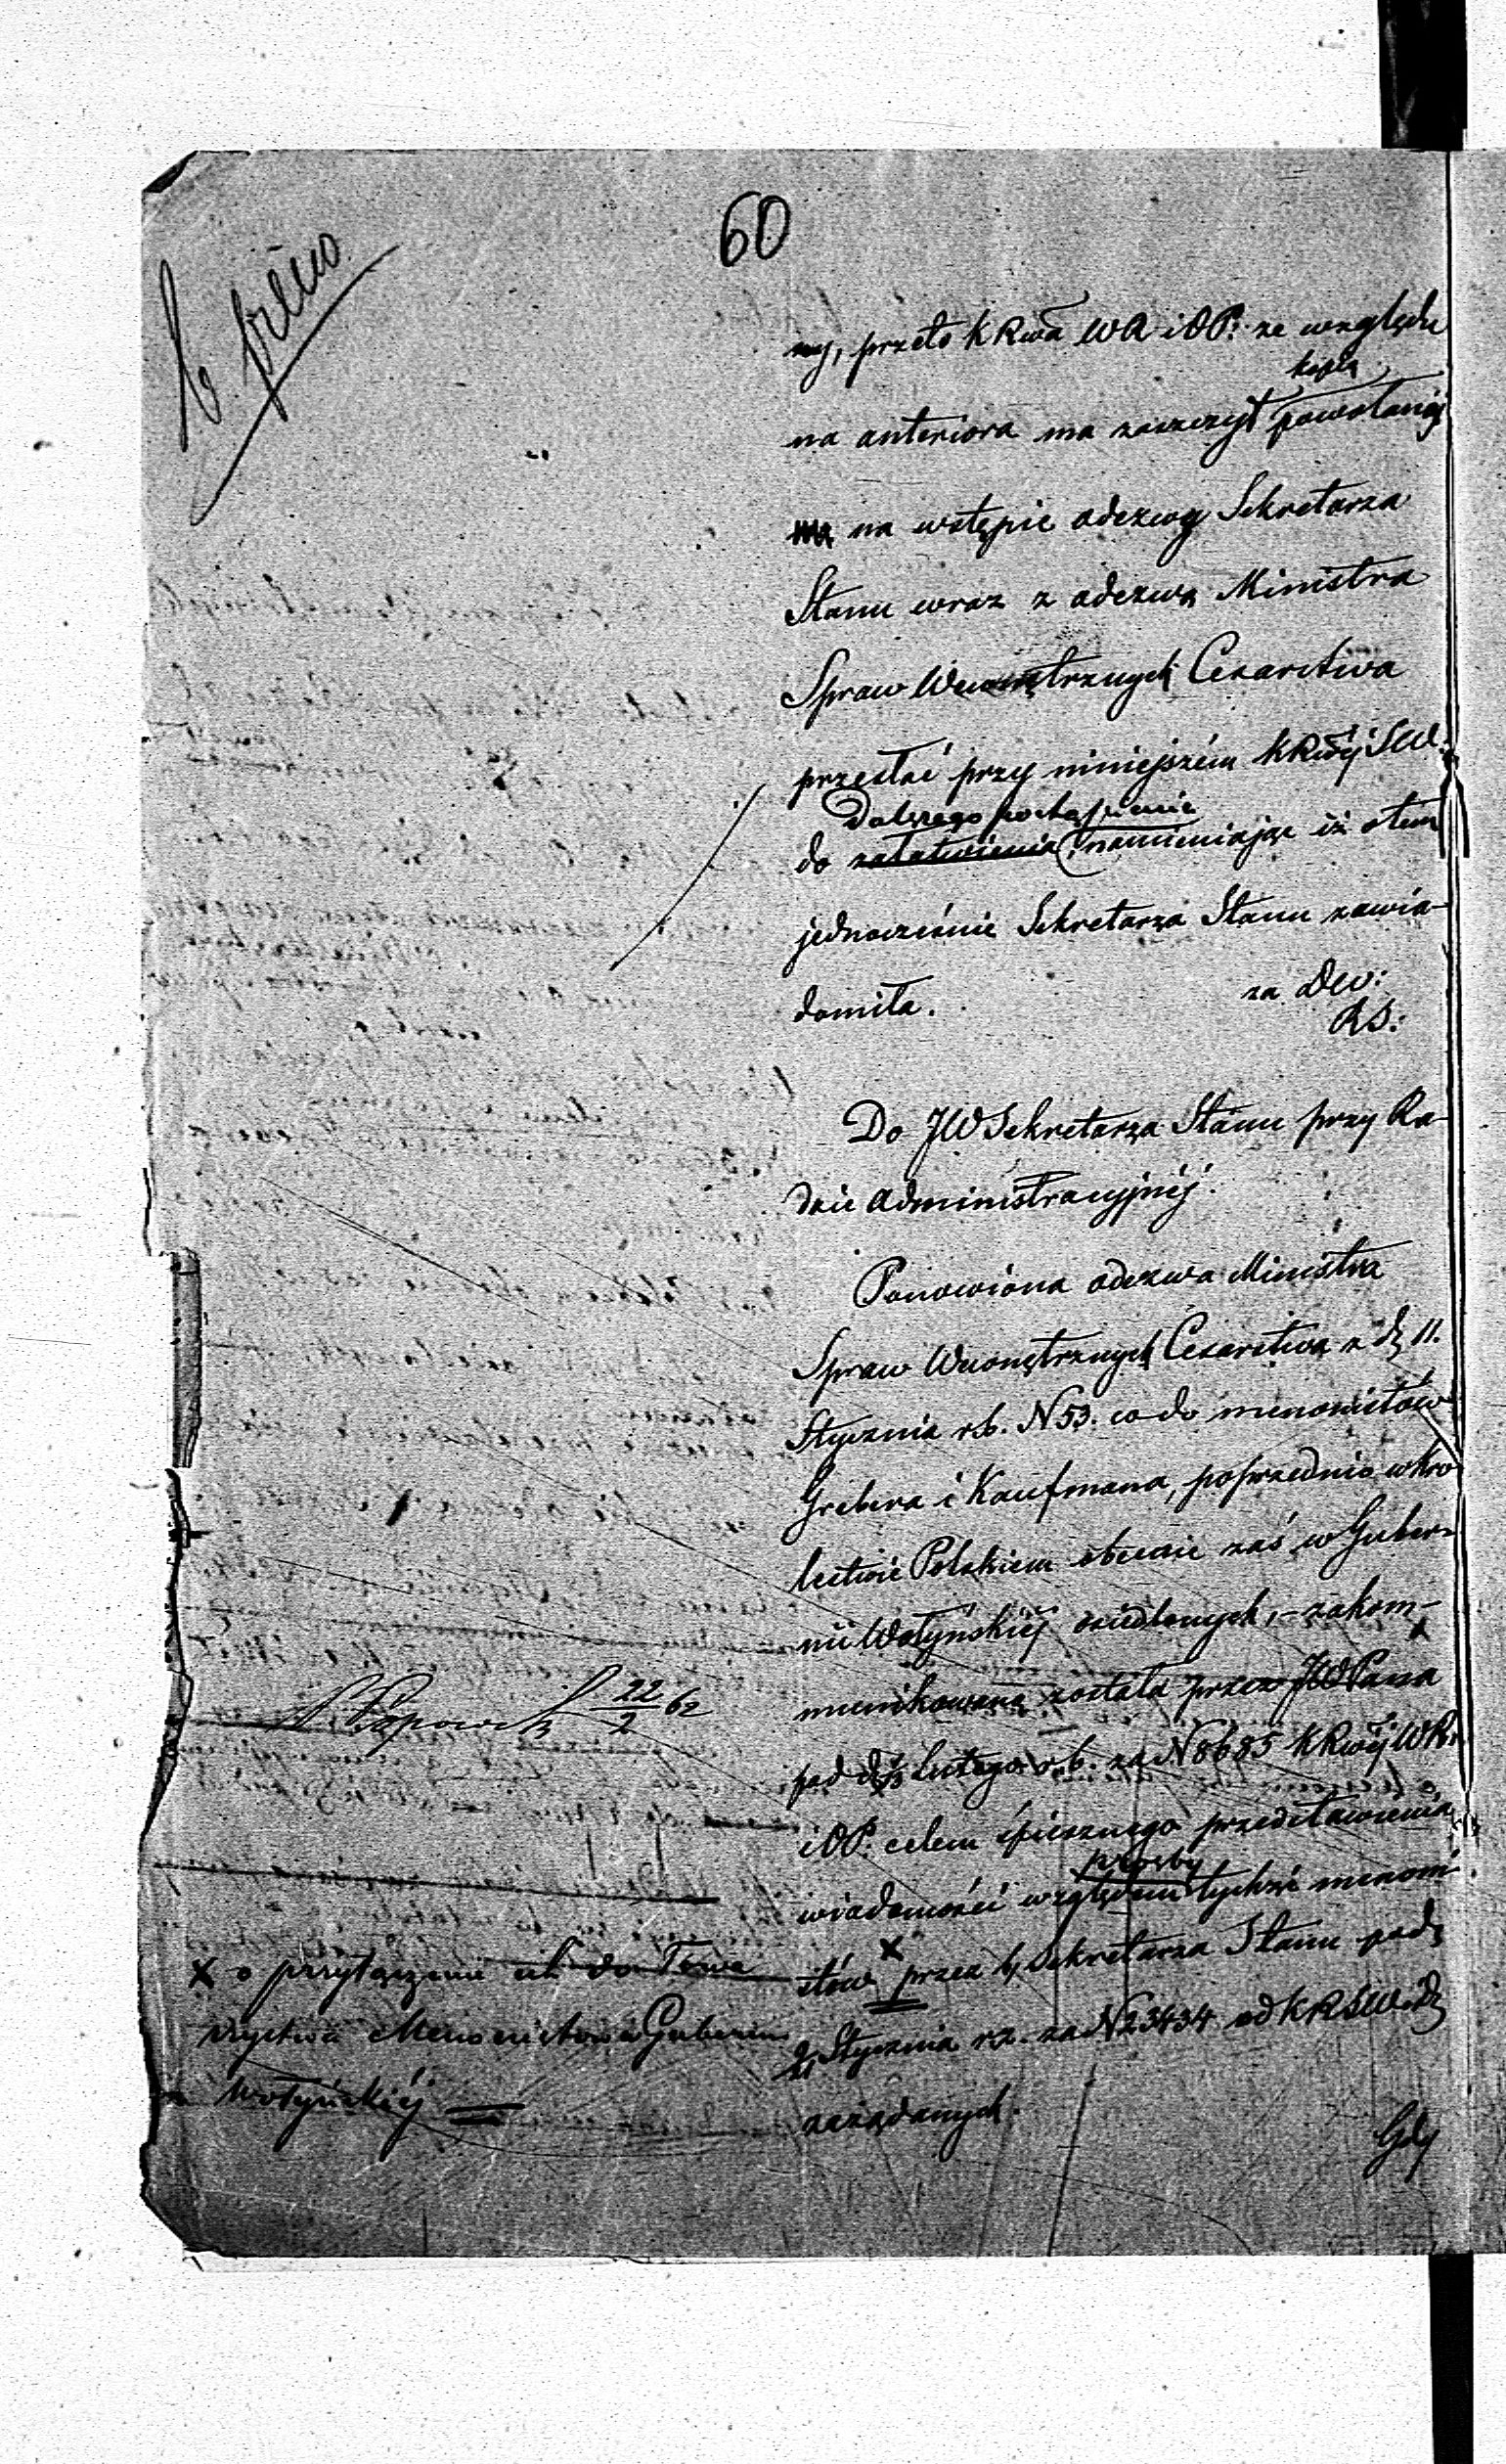 60
ny, przeto KRwa WR i OP: ze względu
kopią
na anteriora ma zaszczyt powołanéj
na wstępie odezwy Sekretarza
Stanu wraz z odezwą Ministra
Spraw Wewnętrznych Cesarstwa
przesłać przy niniejszém KRwéj SW:
dalszego postąpienia
do załatwienia, namieniając iż o tem
jednocześnie Sekretarza Stanu zawia-
domiła.
za Dw:
RS:
Do JW Sekretarza Stanu przy Ra-
dzie Administracyjnéj.
Ponowiona odezwa Ministra
Spraw Wewnętrznych Cesarstwa z d. 11.
Stycznia r.b. N 53. co do menonistów
Grebera i Kaufmana, poprzednio w Kró
lestwie Polskiem obecnie zaś w Guber-
nii Wołyńskiéj osiedlonych, - zakom-
munikowaną została przez JW Pana
pod d. Lutego r.b. za N 8685 KRwéj WR.
i OP. celem śpiesznego przedstawienia
prośby
wiadomości względem tychże menoni
stów x przez b. Sekretarza Stanu pod
Stycznia r.z. za N 23434 od KRSW. i D
zażądanych.
Gdy
22/2 62
x o przyłączenie ich do Towa
rzystwa Menonistów Gubernii
Wołyńskiéj